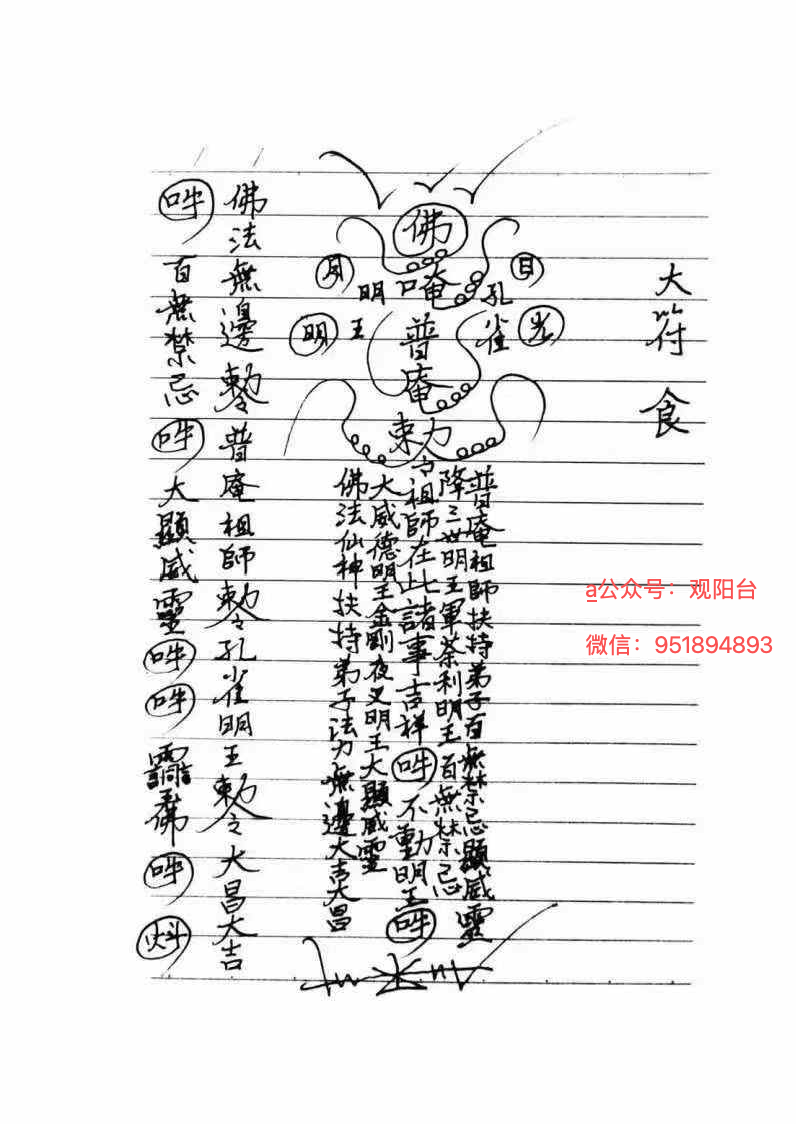 大符食
佛
唵
普庵
勅令
日
月
孔雀
明王
光
明
普庵祖師扶持弟子百無禁忌顯威靈
降三世明王軍荼利明王百無禁忌
祖師在此諸事吉祥吽不動明王吽
大威德明王金剛夜叉明王大顯威靈
佛法仙神扶持弟子法力無邊大吉大昌
佛法無邊勅令普庵祖師勅令孔雀明王勅令大昌大吉
吽百無禁忌吽大顯威靈吽吽佛吽
a公众号：观阳台
微信：951894893